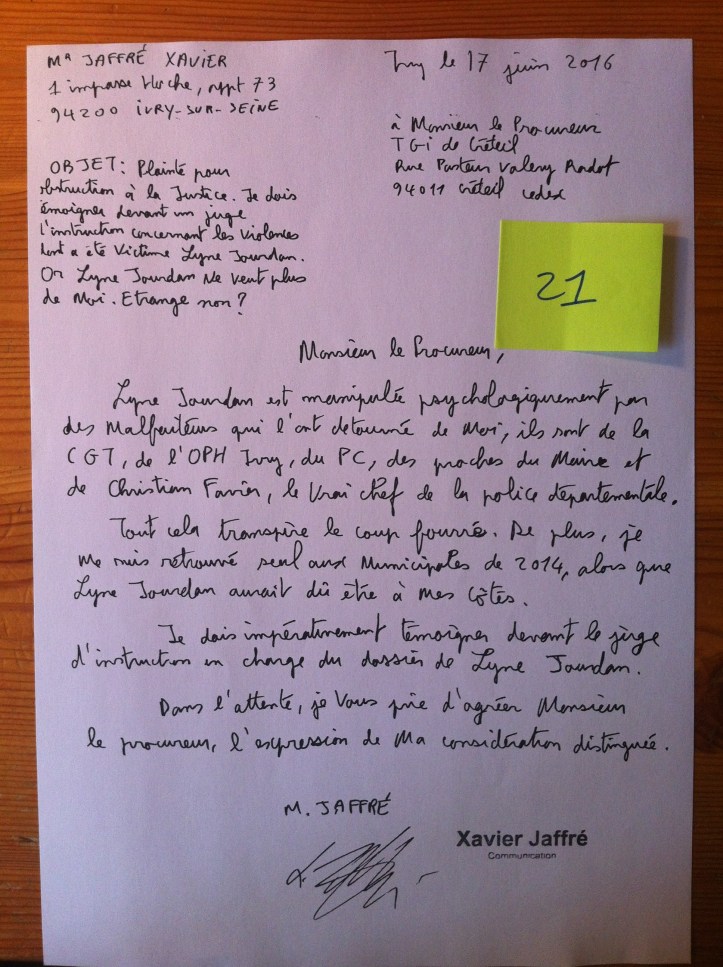 Mr JAFFRÉ XAVIER
1 impasse Hoche, appt 73
94200 IVRY-SUR-SEINE
Ivry le 17 juin 2016
à Monsieur le Procureur
TGI de Créteil
Rue Pasteur Valery Radot
94011 Créteil cedex
OBJET: Plainte pour
obstruction à la Justice. Je dois
témoigner devant un juge
d'instruction concernant les Violences
dont a été Victime Lyne Jourdan.
Or Lyne Jourdan Ne veut plus
de Moi. Etrange non?
21
Monsieur le Procureur,
Lyne Jourdan est manipulée psychologiquement par
des Malfaiteurs qui l'ont detournée de Moi, ils sont de la
CGT, de l'OPH Ivry, du PC, des proches du Maire et
de Christian Favier, le Vrai chef de la police départementale.
Tout cela transpire le coup fourré. De plus, je
me suis retrouvé seul aux Municipales de 2014, alors que
Lyne Jourdan aurait dû être à Mes Côtés.
Je dois impérativement témoigner devant le juge
d'instruction en charge du dossier de Lyne Jourdan.
Dans l'attente, je Vous prie d'agréer Monsieur
le procureur, l'expression de Ma considération distinguée.
M. JAFFRÉ
Xavier Jaffré
Communication